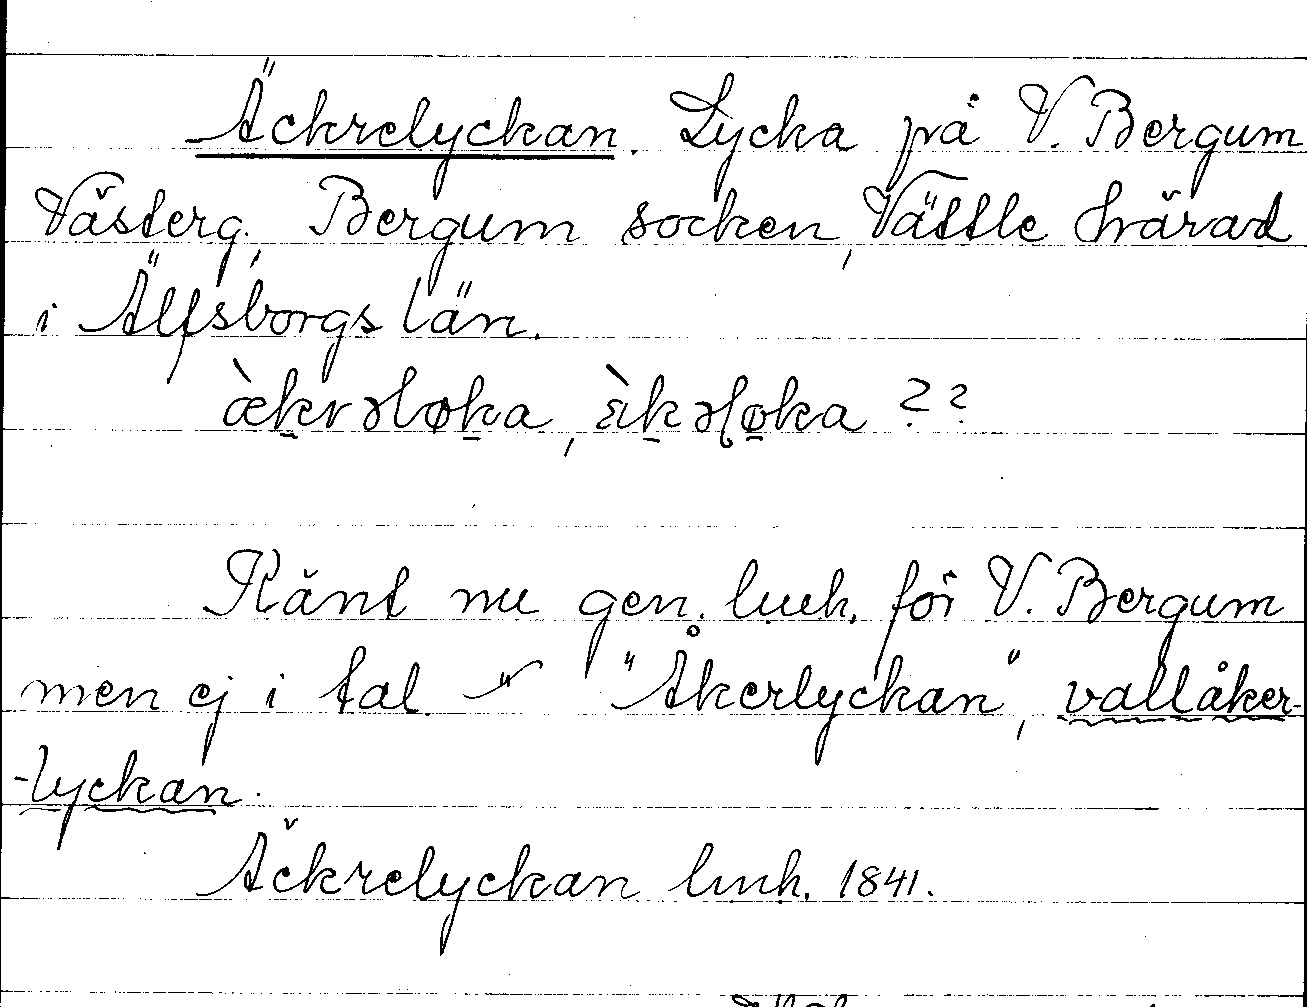 Äckrelyckan. Lycka på V. Bergum
Västerg., Bergum socken, Vättle härad
i Älfsborgs län.
Känt nu gen. lmh. för V. Bergum
men ej i tal. "Åkerlyckan", vallåker-
-lyckan.
Äckrelyckan lmh. 1841.